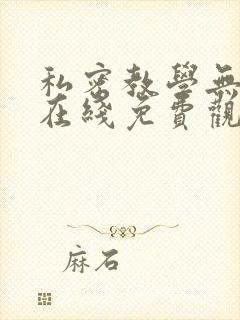 私密教學無
在綫免費觀
麻石